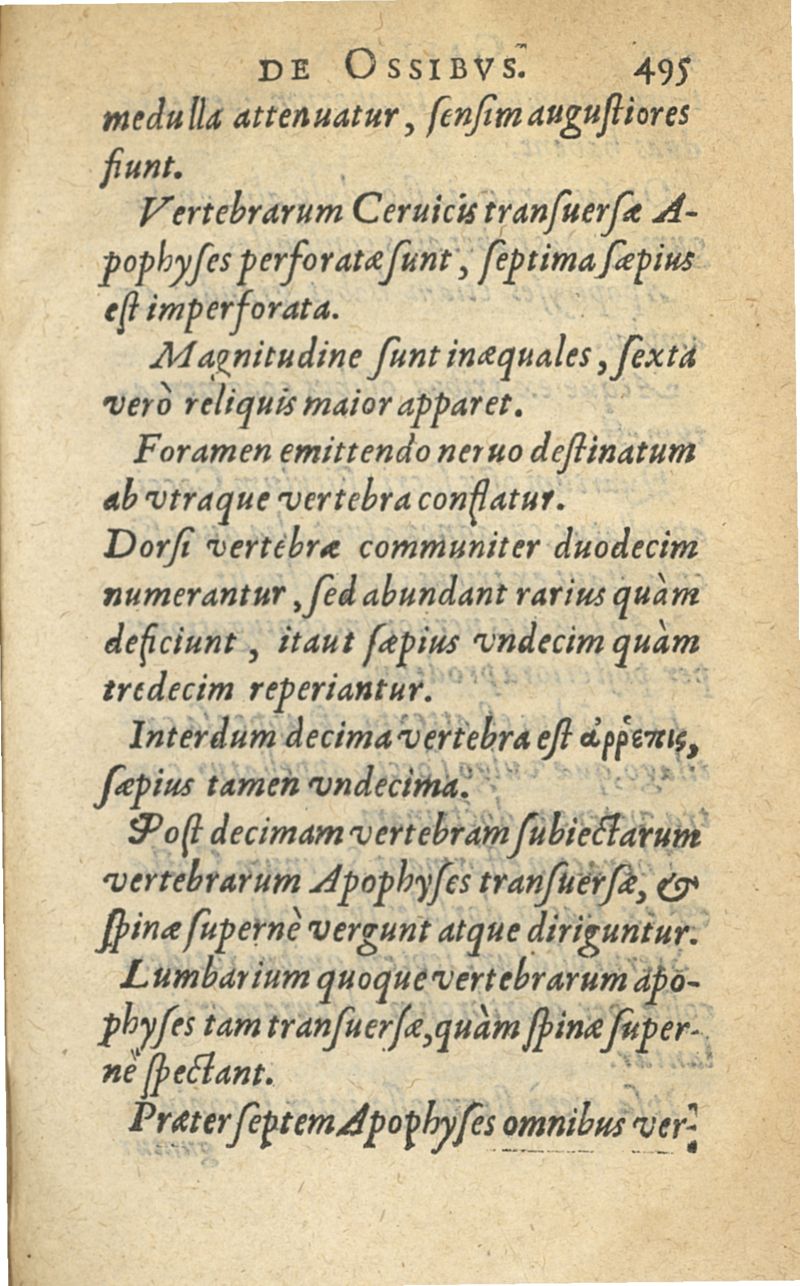 DE OSSIBVS. 495
medulla attenuatur, ſenſim auguſtiores
fiunt.
Vertebrarum Ceruicis tranſuerſæ A-
pophyſes perforatæ ſunt, ſeptima ſæpius
eſt imperforata.
Magnitudine ſunt inæquales, ſexta
verò reliquis maior apparet.
Foramen emittendo neruo deſtinatum
ab vtraque vertebra conflatur.
Dorſi vertebræ communiter duodecim
numerantur, ſed abundant rarius quàm
deficiunt, itaut ſæpius vndecim quàm
tredecim reperiantur.
Interdum decima vertebra eſt ἀῤῥεπις,
ſæpius tamen vndecima.
Poſt decimam vertebram ſubiectarum
vertebrarum Apophyſes tranſuerſæ, &
ſpinæ ſupernè vergunt atque diriguntur.
Lumbarium quoque vertebrarum apo-
phyſes tam tranſuerſæ, quàm ſpinæ ſuper-
nè ſpectant.
Præter ſeptem Apophyſes omnibus ver-